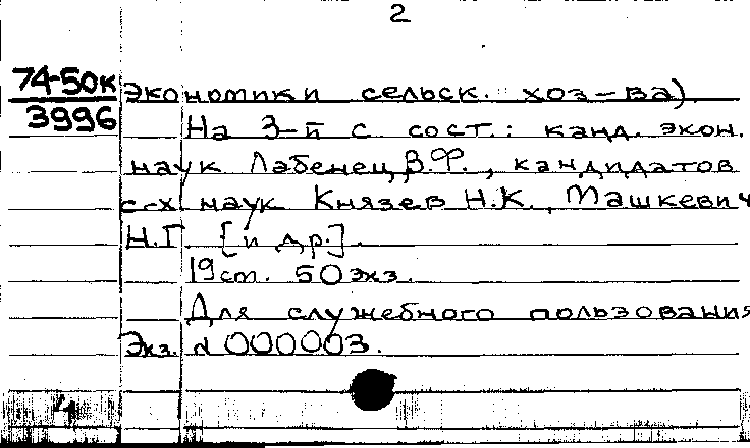 2
74-50к
3996
экономики сельск. хоз-ва)
На 3-й с. сост.: канд. экон.
наук Лабенец В.Ф., кандидатов
с-х. наук Князев Н.К., Машкевич
Н.Г. [и др.].
19 cm. 50 экз.
Для служебного пользования
Экз. № 000003.